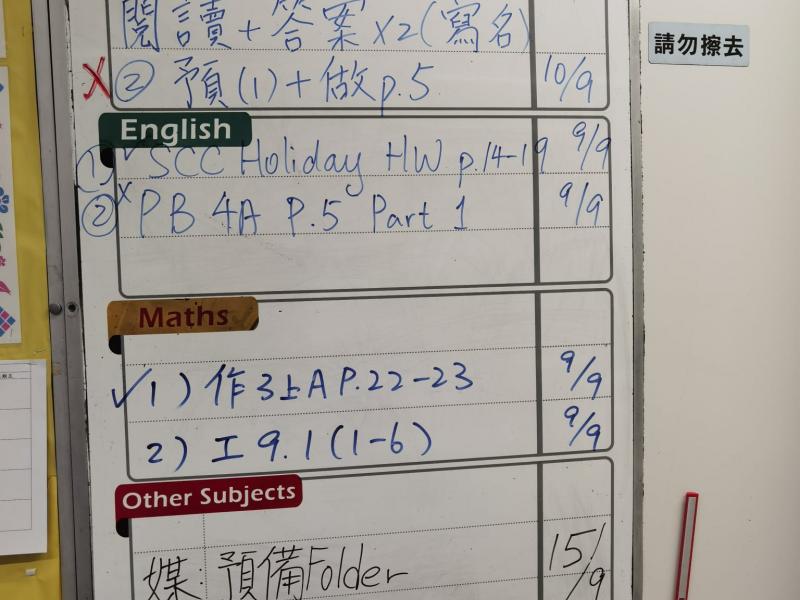 閱讀+答案x2(寫名)
請勿擦去
X ② 預(1)+做p.5 10/9
English
① ✓ SCC Holiday HW p.14-19 9/9
② x PB 4A P.5 Part 1 9/9
Maths
✓1) 作3上A P.22-23 9/9
2) 工 9.1 (1-6) 9/9
Other Subjects
媒: 預備Folder 15/9